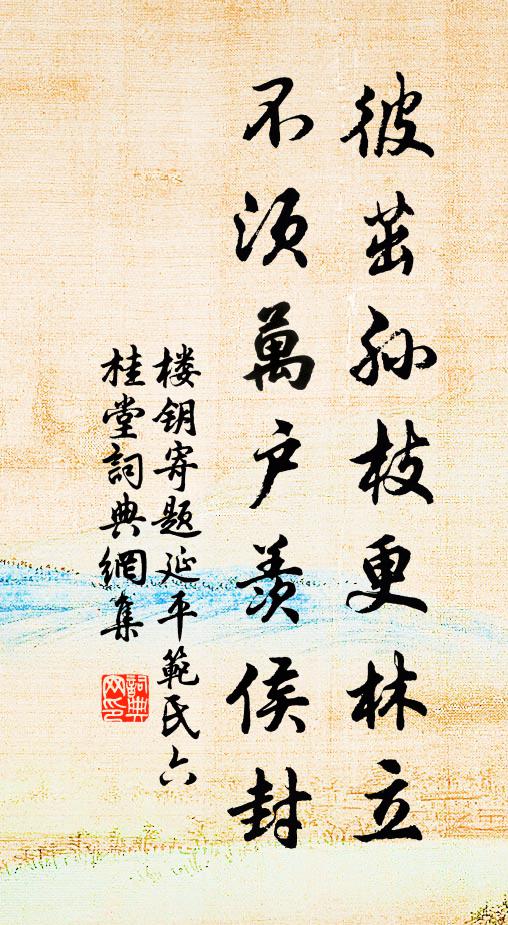 彼茁孙枝更林立
不须萬户羨侯封
楼钥寄题延平範氏六
桂堂詞典網集
詞典
网印